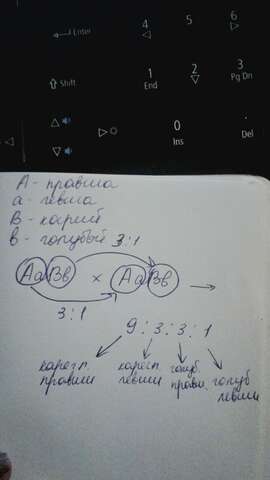 4
5
6
Enter
Shift
1
End
2
3
Pg Dn
0
Ins
.
Del
А - правша
а - левша
В - карий
в - голубой 3:1
АаВв × АаВв →
3:1
9:3:3:1
карегл. правши
карегл. левши
голуб. правш.
голуб левши